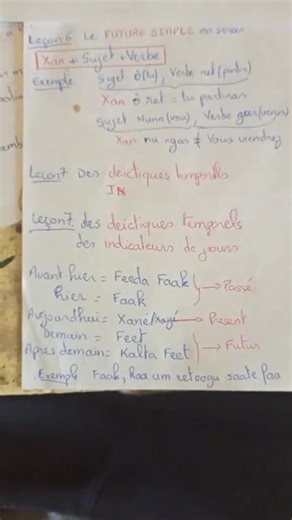 Leçon 6 Le FUTURE SIMPLE en sereer
Xan + Sujet + Verbe
Exemple Sujet ô (tu), Verbe ret (partir)
Xan ô ret = tu partiras
Sujet Nunn (vous), Verbe gar (venir)
Xan nu ngar = Vous viendrez
Leçon 7 Des deictiques temporels
IN
Leçon 7 des deictiques temporels
des indicateurs de jours
Avant-hier = Feeda Faak
hier = Faak → Passé
Aujourd'hui = Xané/xayé → Present
Demain = Feet
Après demain = Kalta Feet → Futur
Exemple Faak, Raa um retoogu saate faa